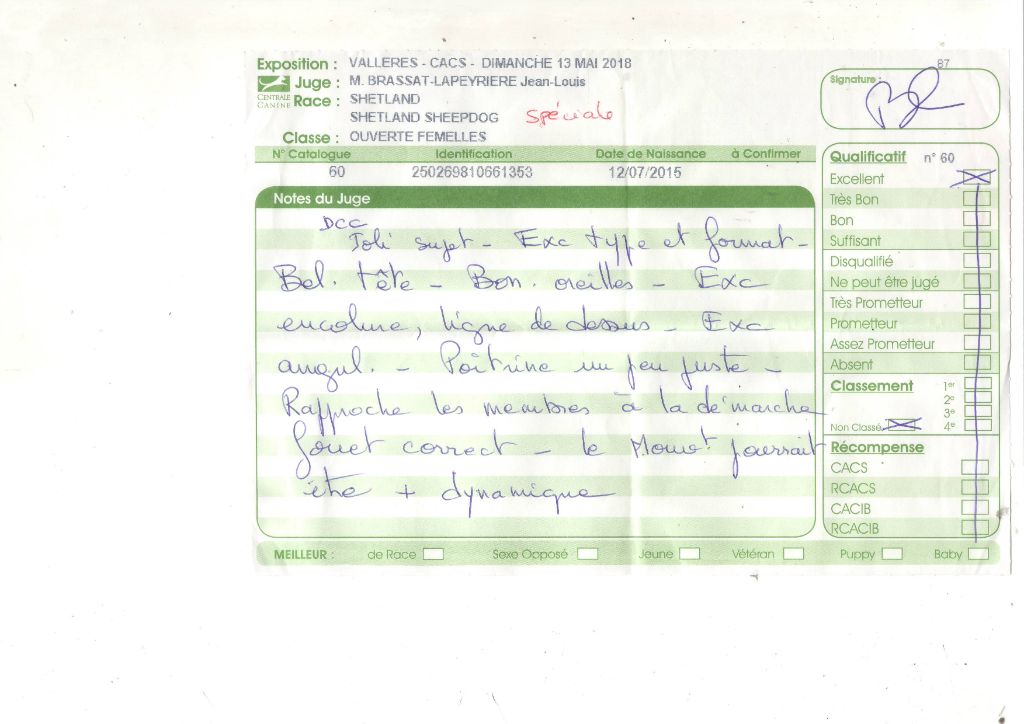 Exposition : VALLERES - CACS - DIMANCHE 13 MAI 2018
87
Juge : M. BRASSAT-LAPEYRIERE Jean-Louis
CENTRALE CANINE
Race : SHETLAND
SHETLAND SHEEPDOG Spéciale
Classe : OUVERTE FEMELLES
Signature :
N° Catalogue Identification Date de Naissance à Confirmer
60 250269810661353 12/07/2015
Notes du Juge
DCC
Joli sujet - Exc type et format -
Bel. tête - Bon. oreilles - Exc
encolure, ligne de dessus - Exc
angul. - Poitrine un peu juste -
Rapproche les membres à la démarche
Fouet correct - le Mouvt pourrait
être + dynamique
Qualificatif n° 60
Excellent
Très Bon
Bon
Suffisant
Disqualifié
Ne peut être jugé
Très Prometteur
Prometteur
Assez Prometteur
Absent
Classement 1er
2e
3e
Non Classé 4e
Récompense
CACS
RCACS
CACIB
RCACIB
MEILLEUR : de Race Sexe Opposé Jeune Vétéran Puppy Baby